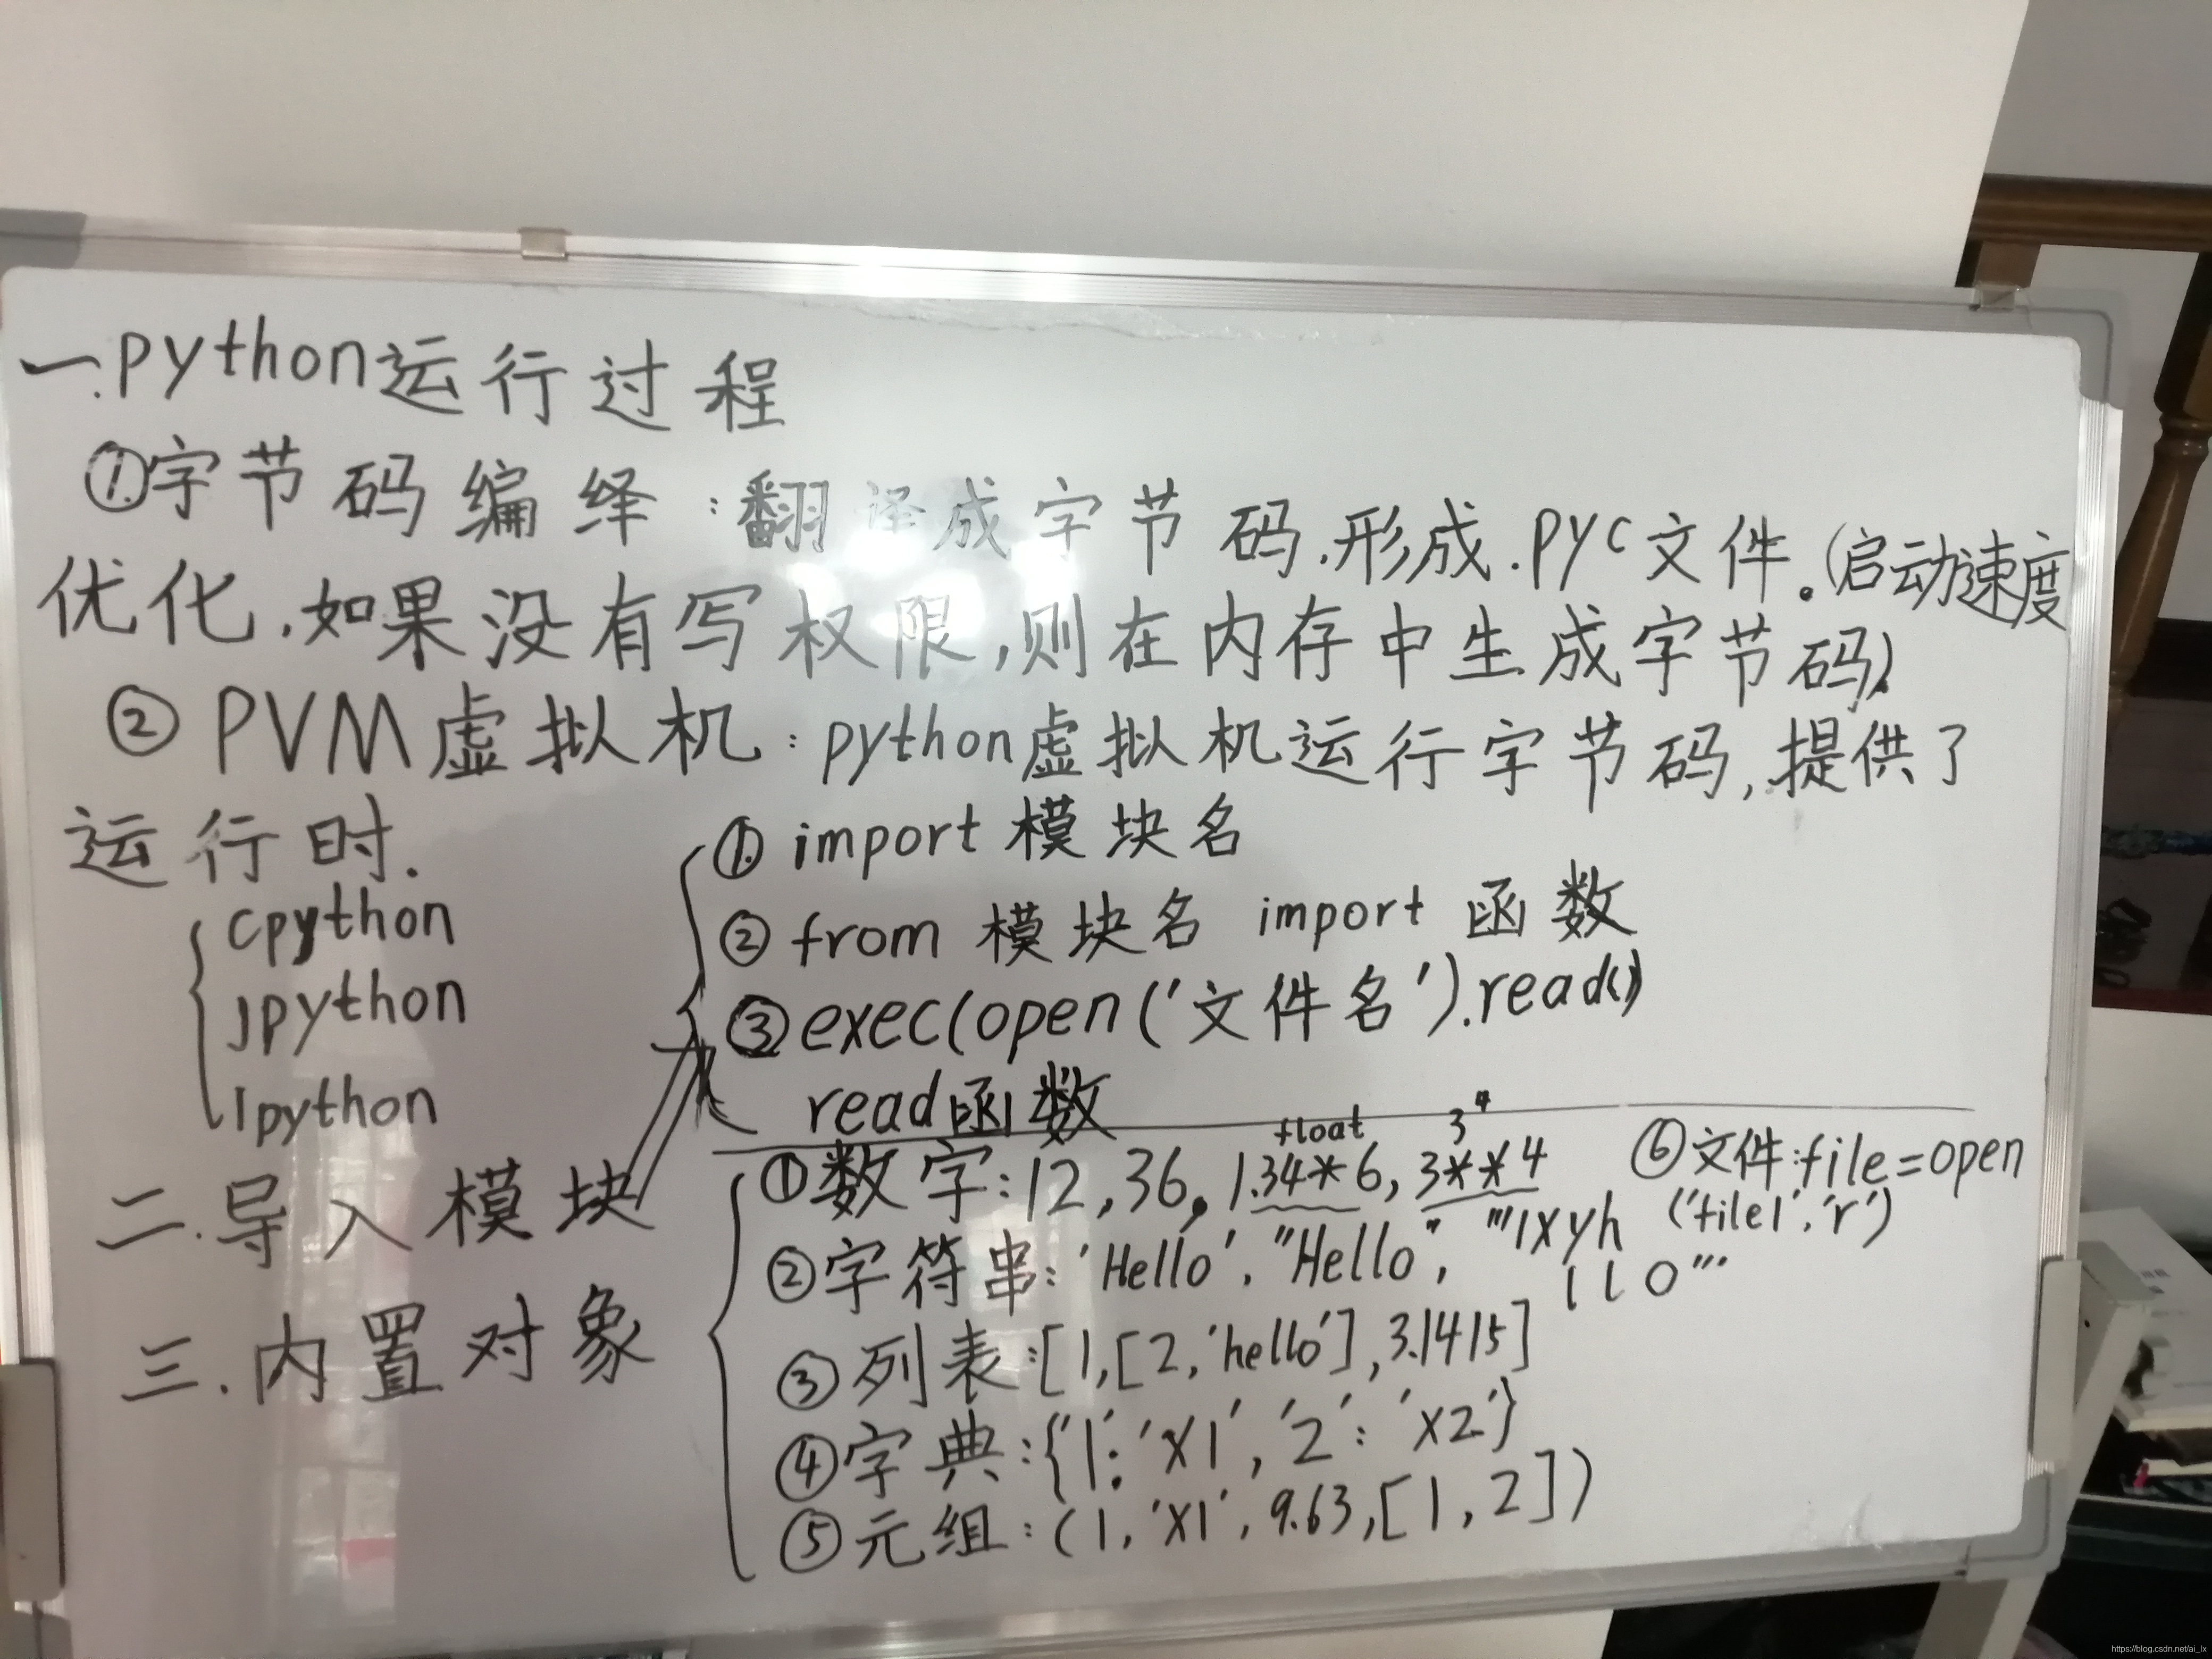 一.python运行过程
①字节码编绎:翻译成字节码.形成.pyc文件。(启动速度
优化.如果没有写权限,则在内存中生成字节码).
② PVM虚拟机:python虚拟机运行字节码,提供了
运行时.
cpython
jpython
Ipython
二.导入模块
① import 模块名
② from 模块名 import 函数
③ exec(open('文件名').read())
read函数
三.内置对象
float 3⁴
①数字:12,36,1.34*6,3**4
②字符串:'Hello'."Hello", '''1xyh
llo'''
③列表:[1,[2,'hello'],3.1415]
④字典:{'1':'x1','2':'x2'}
⑤元组:(1,'x1',9.63,[1,2])
⑥文件:file=open
('file1','r')
https://blog.csdn.net/ai_lx